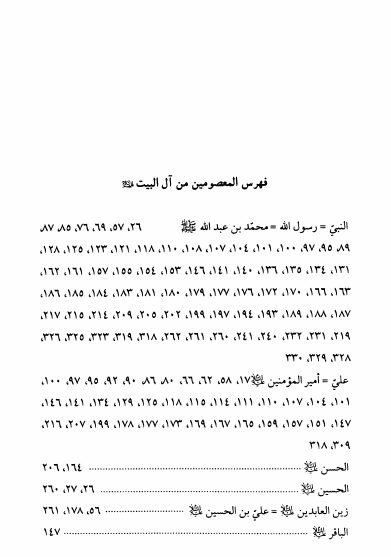 فهرس المعصومين من آل البيت ﷺ
النبيّ = رسول الله = محمّد بن عبد الله ﷺ ٢٦، ٥٧، ٦٩، ٧٦، ٨٥، ٨٧،
٨٩، ٩٥، ٩٧، ١٠٠، ١٠١، ١٠٤، ١٠٧، ١٠٨، ١١٠، ١١٨، ١٢١، ١٢٣، ١٢٥، ١٢٨،
١٣١، ١٣٤، ١٣٥، ١٣٦، ١٤٠، ١٤١، ١٤٦، ١٥٣، ١٥٤، ١٥٥، ١٥٧، ١٦١، ١٦٢،
١٦٣، ١٦٦، ١٧٠، ١٧٢، ١٧٦، ١٧٧، ١٧٩، ١٨٠، ١٨١، ١٨٣، ١٨٤، ١٨٥، ١٨٦،
١٨٧، ١٨٨، ١٨٩، ١٩٣، ١٩٤، ١٩٧، ١٩٩، ٢٠٢، ٢٠٥، ٢٠٩، ٢١٤، ٢١٥، ٢١٧،
٢١٩، ٢٣١، ٢٣٢، ٢٤٠، ٢٤١، ٢٦٠، ٢٦١، ٢٦٢، ٣١٨، ٣١٩، ٣٢٣، ٣٢٥، ٣٢٦،
٣٢٨، ٣٢٩، ٣٣٠
عليّ = أمير المؤمنين ١٧، ٥٨، ٦٢، ٦٦، ٨٠، ٨٦، ٩٠، ٩٢، ٩٥، ٩٧، ١٠٠،
١٠١، ١٠٤، ١٠٧، ١١٠، ١١١، ١١٤، ١١٥، ١١٨، ١٢٥، ١٢٩، ١٣٤، ١٤١، ١٤٦،
١٤٧، ١٥١، ١٥٧، ١٥٩، ١٦٥، ١٦٧، ١٦٩، ١٧٣، ١٧٧، ١٧٨، ١٩٩، ٢٠٧، ٢١٦،
٣٠٩، ٣١٨
الحسن ........ ١٦٤، ٢٠٦
الحسين ........ ٢٦، ٢٧، ٢٦٠
زين العابدين = عليّ بن الحسين ........ ٥٦، ١٧٨، ٢٦١
الباقر ........ ١٤٧